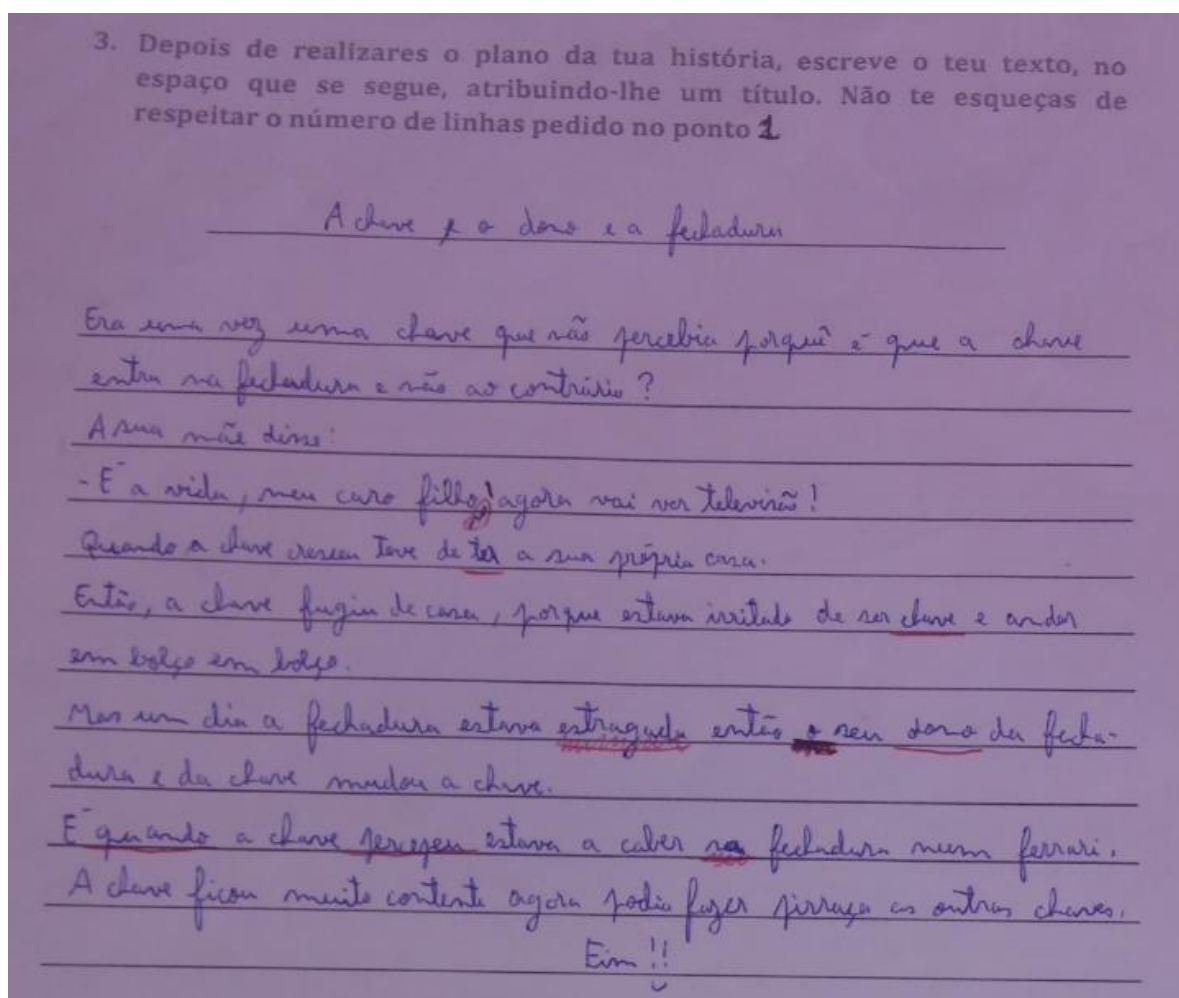 3. Depois de realizares o plano da tua história, escreve o teu texto, no
espaço que se segue, atribuindo-lhe um título. Não te esqueças de
respeitar o número de linhas pedido no ponto 1
A chave e o dono e a fechadura
Era uma vez uma chave que não percebia porquê é que a chave
entra na fechadura e não ao contrário?
A sua mãe disse:
- É a vida, meu caro filho, agora vai ver televisã!
Quando a chave cresceu teve de ter a sua própria casa.
Então, a chave fugiu de casa, porque estava irritado de ser chave e andar
em bolço em bolço.
Mas um dia a fechadura estava estragada então o seu dono da fecha-
dura e da chave mudou a chave.
E quando a chave percepeu estava a caber na fechadura num ferrari.
A chave ficou muito contente agora podia fazer pirraça as outras chaves.
Eim!!